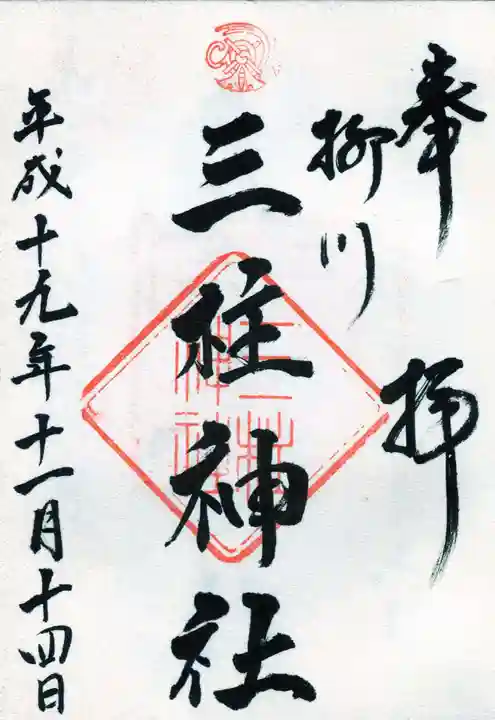 奉拝
柳川
三柱神社
三柱神社
平成十九年十一月十四日